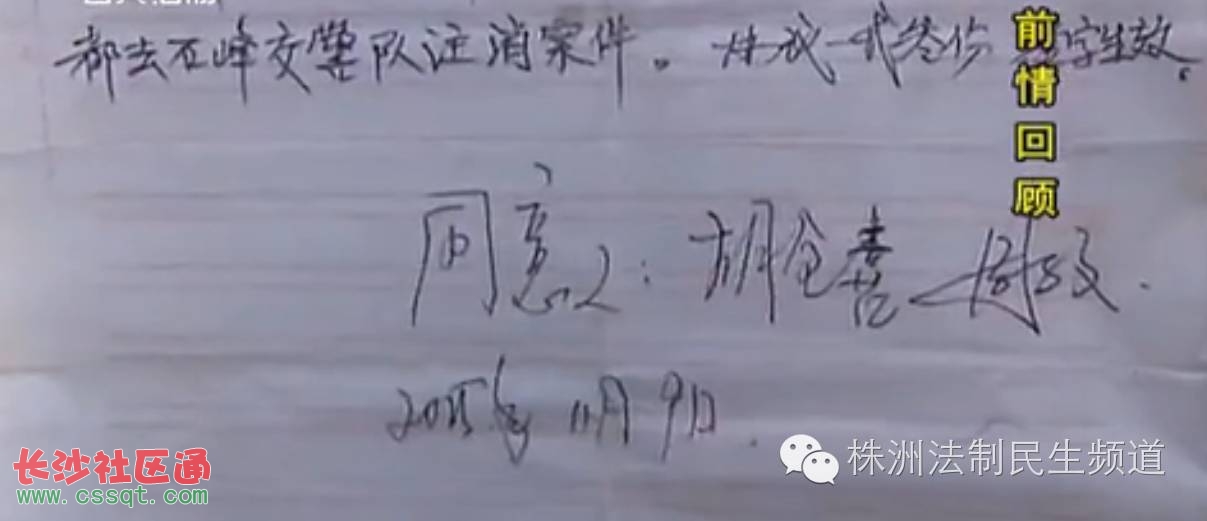 都去石峰交警队注消案件。 一式叁份 字生效。
前情回顾
同意: 胡全喜
2015年11月9日.
长沙社区通
www.cssqt.com
株洲法制民生频道